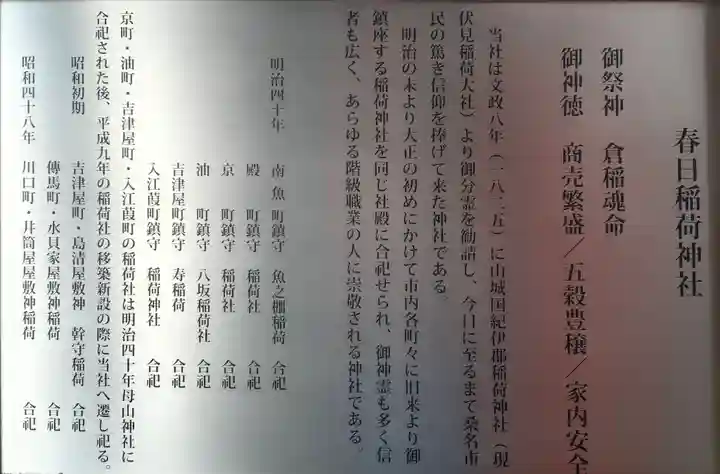 春日稲荷神社
御祭神　倉稲魂命
御神徳　商売繁盛／五穀豊穣／家内安全
当社は文政八年（一八二五）に山城国紀伊郡稲荷神社（現
伏見稲荷大社）より御分霊を勧請し、今日に至るまで桑名市
民の篤き信仰を捧げて来た神社である。
明治の末より大正の初めにかけて市内各町々に旧来より御
鎮座する稲荷神社を同じ社殿に合祀せられ、御神霊も多く信
者も広く、あらゆる階級職業の人に崇敬される神社である。
明治四十年　南魚町鎮守　魚之棚稲荷　合祀
殿町鎮守　稲荷社　合祀
京町鎮守　稲荷社　合祀
油町鎮守　八坂稲荷社　合祀
吉津屋町鎮守　寿稲荷　合祀
入江葭町鎮守　稲荷神社　合祀
京町・油町・吉津屋町・入江葭町の稲荷社は明治四十年母山神社に
合祀された後、平成九年の稲荷社の移築新設の際に当社へ遷し祀る。
昭和初期　吉津屋町・島清屋敷神　幹守稲荷　合祀
傳馬町・水貝家屋敷神稲荷　合祀
昭和四十八年　川口町・井筒屋屋敷神稲荷　合祀